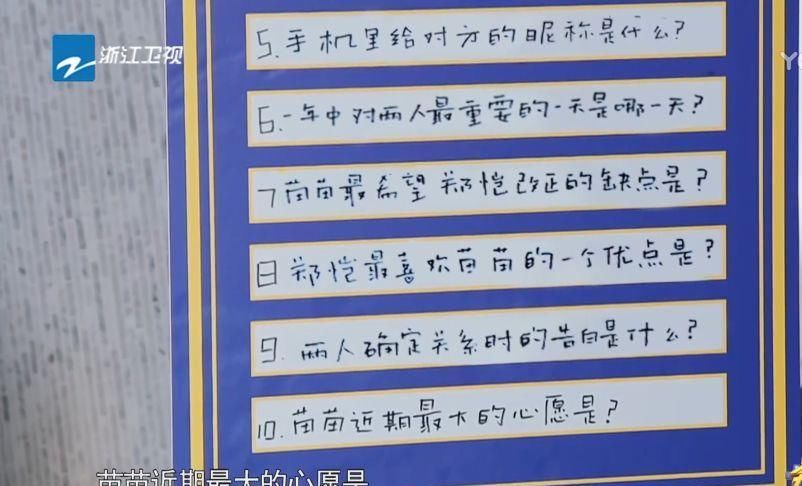 浙江卫视
5.手机里给对方的昵称是什么?
6.一年中对两人最重要的一天是哪一天?
7苗苗最希望郑恺改正的缺点是?
8郑恺最喜欢苗苗的一个优点是?
9.两人确定关系时的告白是什么?
10.苗苗近期最大的心愿是?
苗苗近期最大的心愿是